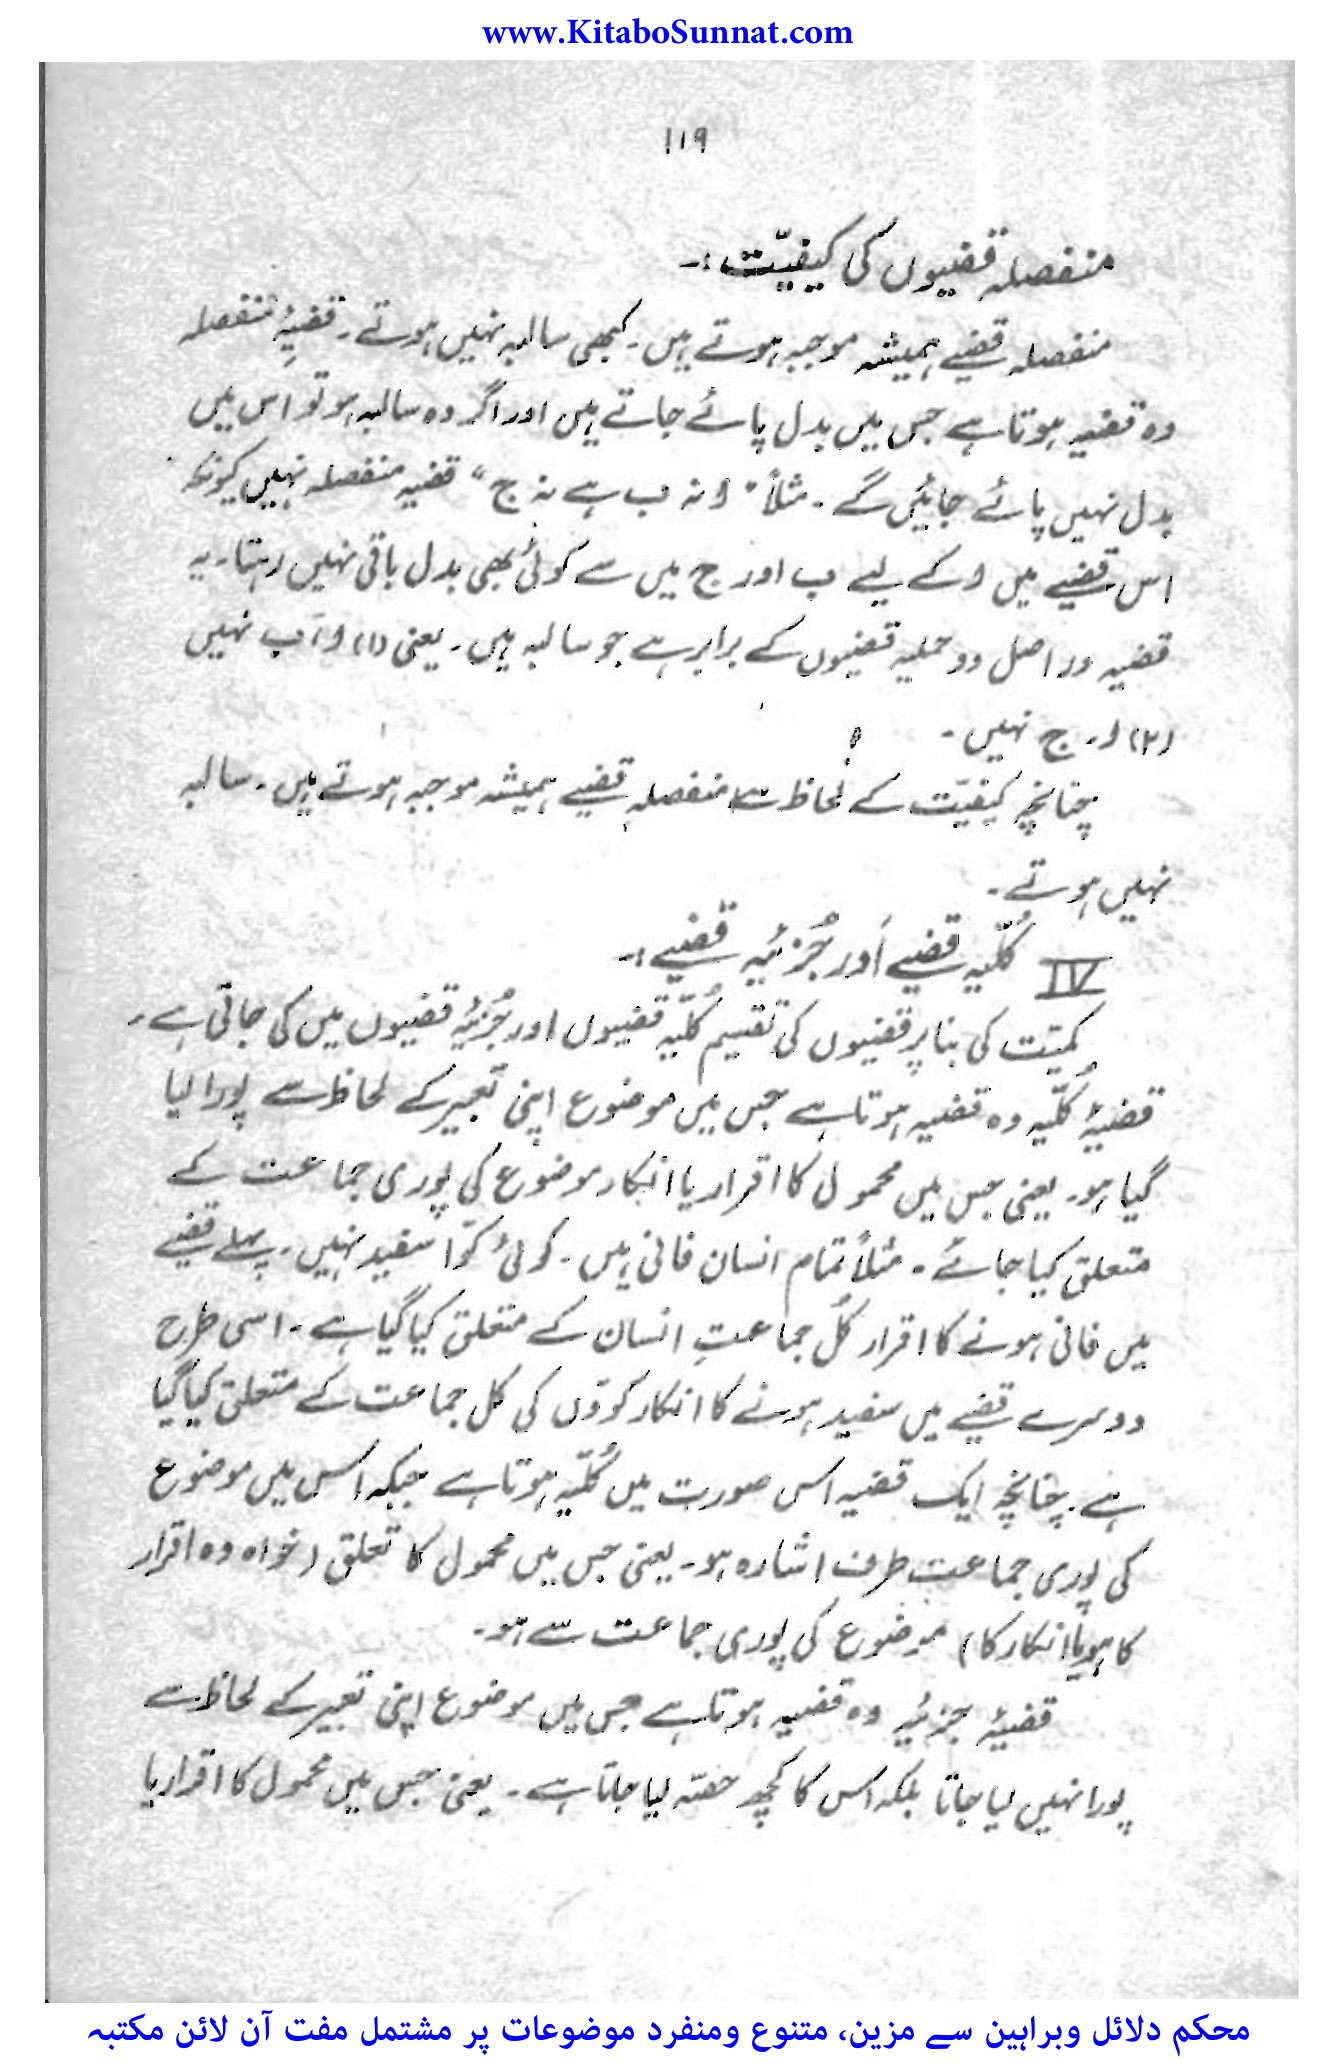 www.KitaboSunnat.com
۱۱۹
منفصلہ قضیوں کی کیفیّت :۔
منفصلہ قضیے ہمیشہ موجبہ ہوتے ہیں۔ کبھی سالبہ نہیں ہوتے۔ قضیۂ منفصلہ
وہ قضیہ ہوتا ہے جس میں بدل پائے جاتے ہیں اور اگر وہ سالبہ ہو تو اس میں
بدل نہیں پائے جائیں گے۔ مثلاً "ا نہ ب ہے نہ ج" قضیہ منفصلہ نہیں کیونکہ
اس قضیے میں ا کے لیے ب اور ج میں سے کوئی بھی بدل باقی نہیں رہتا۔ یہ
قضیہ دراصل دو حملیہ قضیوں کے برابر ہے جو سالبہ ہیں۔ یعنی (۱) ا، ب نہیں
(۲) ا۔ ج نہیں۔
چنانچہ کیفیّت کے لحاظ سے منفصلہ قضیے ہمیشہ موجبہ ہوتے ہیں۔ سالبہ
نہیں ہوتے۔
IV کُلّیہ قضیے اَور جُزئیہ قضیے :۔
کمیّت کی بنا پر قضیوں کی تقسیم کُلّیہ قضیوں اور جُزئیہ قضیوں میں کی جاتی ہے۔
قضیۂ کُلّیہ وہ قضیہ ہوتا ہے جس میں موضوع اپنی تعبیر کے لحاظ سے پورا لیا
گیا ہو۔ یعنی جس میں محمول کا اقرار یا انکار موضوع کی پوری جماعت کے
متعلق کیا جائے۔ مثلاً تمام انسان فانی ہیں۔ کوئی کوّا سفید نہیں۔ پہلے قضیے
میں فانی ہونے کا اقرار کُل جماعتِ انسان کے متعلق کیا گیا ہے۔ اسی طرح
دوسرے قضیے میں سفید ہونے کا انکار کوّوں کی کل جماعت کے متعلق کیا گیا
ہے۔ چنانچہ ایک قضیہ اس صورت میں کُلّیہ ہوتا ہے جبکہ اس میں موضوع
کی پوری جماعت طرف اشارہ ہو۔ یعنی جس میں محمول کا تعلق (خواہ وہ اقرار
کا ہو یا انکار کا) موضوع کی پوری جماعت سے ہو۔
قضیۂ جزئیہ وہ قضیہ ہوتا ہے جس میں موضوع اپنی تعبیر کے لحاظ سے
پورا نہیں لیا جاتا بلکہ اس کا کچھ حصّہ لیا جاتا ہے۔ یعنی جس میں محمول کا اقرار یا
محکم دلائل وبراہین سے مزین، متنوع ومنفرد موضوعات پر مشتمل مفت آن لائن مکتبہ